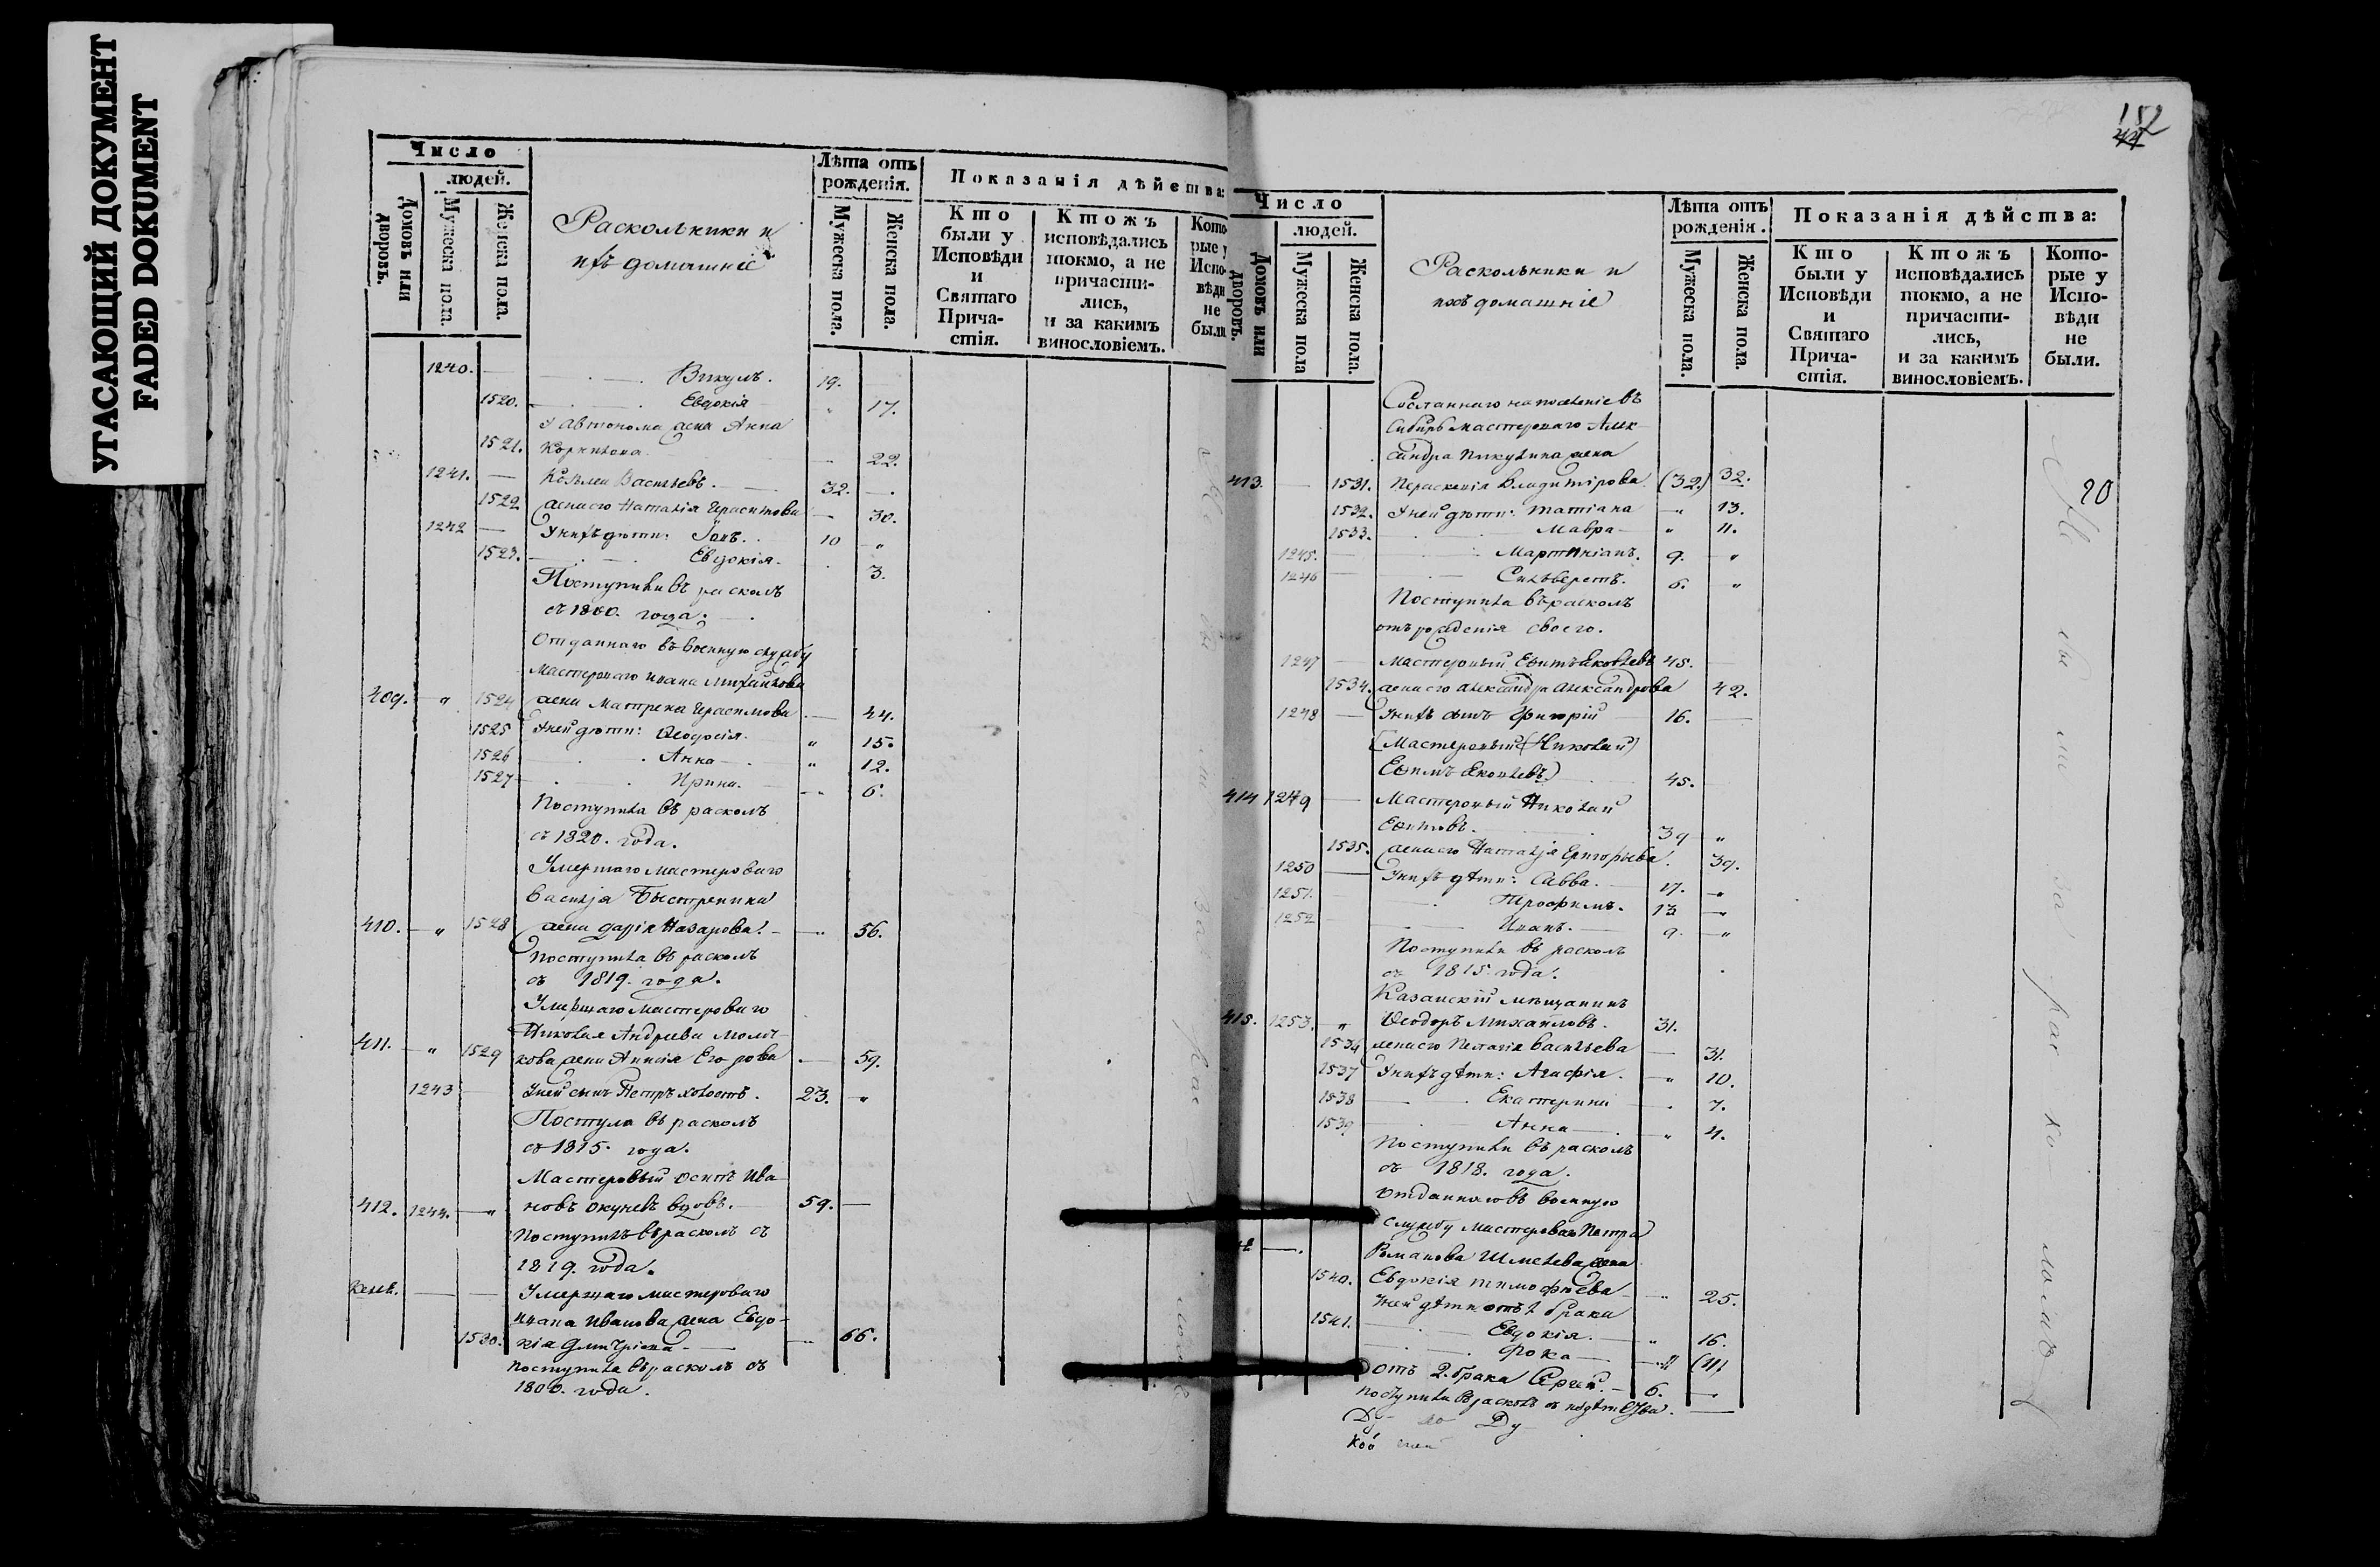 УГАСАЮЩИЙ ДОКУМЕНТ
FADED DOKUMENT
Число
людей.
Домовъ или дворовъ.
Мужеска пола.
Женска пола.
Раскольники и
ихъ домашніе
Лѣта отъ рожденія.
Мужеска пола.
Женска пола.
Показанія дѣйства:
Кто были у Исповѣди и Святаго Причастія.
Ктожъ исповѣдались токмо, а не причастились, и за какимъ винословіемъ.
Которые у Исповѣди не были
1240. — Викулъ. 19.
1520. Евдокія 17.
У Автонома жена Анна
1521. Корнилова 22.
1241. — Козьма Васильевъ. 32. —
1522 жена его Наталія Герасимова — 30.
1242 — У нихъ дѣти: Іовъ. 10 „
1523. Евдокія. 3.
Поступили въ расколъ
съ 1800. года.
Отданнаго въ военную службу
Мастероваго Ивана Михайлова
409. „ 1524 жена Матрена Герасимова — 44.
1525 У ней дѣти: Ѳеодосія. „ 15.
1526 Анна „ 12.
1527 Ирина. 6.
Поступила въ расколъ
съ 1820. года.
Умершаго мастероваго
Василія Быстренина
410. — „ 1528 жена Дарія Назарова. — 56.
Поступила въ расколъ
съ 1819. года.
Умершаго мастероваго
Николая Андреева
411. — „ 1529 жена Анисія Егорова — 59.
1243 У ней сынъ Петръ холостъ. 23. „
Поступла въ расколъ
съ 1815. года.
Мастеровый Осипъ Ива
412. 1244. — „ новъ Окуневъ вдовъ. 59. —
Поступилъ въ расколъ съ
1819. года.
— — Умершаго мастероваго
Ивана Иванова жена Евдо-
1530. кія Дмитріева — 66.
поступила въ расколъ съ
1800. года.
152
Число
людей.
Домовъ или дворовъ.
Мужеска пола
Женска пола.
Раскольники и
ихъ домашніе
Лѣта отъ рожденія.
Мужеска пола.
Женска пола.
Показанія дѣйства:
Кто были у Исповѣди и Святаго Причастія.
Ктожъ исповѣдались токмо, а не причастились, и за какимъ винословіемъ.
Которые у Исповѣди не были.
Сосланнаго на поселеніе въ
Сибирь мастероваго Алек
сандра Никулина жена
413. — 1531. Параскевія Владимірова (32.) 32. 20
1532. У ней дѣти: Татіана „ 13.
1533. Мавра — „ 11.
1245. Мартиніанъ. 9. „
1246 Сильверстъ. 6. „
Поступила въ расколъ
отъ рожденія своего.
1247 — Мастеровый Евѳимъ Яковлевъ 45.
1534. жена его Александра Александрова 42.
1248 — У нихъ сынъ Григорій 16. —
(Мастеровый (Николай)
Евѳимъ Яковлевъ) 45.
414 1249 — Мастеровый Николай
Евѳимовъ. 39 „
1535. жена его Наталія Григорьева. 39.
1250 — У нихъ дѣти: Савва. 17. „
1251. — Трофимъ. 13 „
1252 Иванъ. 9. „
Поступили въ расколъ
съ 1815. года.
Казанскій мѣщанинъ
415. 1253. „ Ѳеодоръ Михайловъ. 31.
жена его Пелагія Васильева — 31.
1537 У нихъ дѣти: Агафія. „ 10.
1538 Екатерина 7.
1539 Анна — „ 4.
Поступили въ расколъ
съ 1818. года.
Отданнаго въ военную
службу Мастероваго Петра
Романова Шмелева жена
1540. Евдокія Тимофѣева — „ 25.
У ней дѣти отъ 1 брака
1541. Евдокія. „ 16.
Фока — „ (11)
Отъ 2. брака Сергѣй. — 6. —
Не бы ли за рас ко ломъ